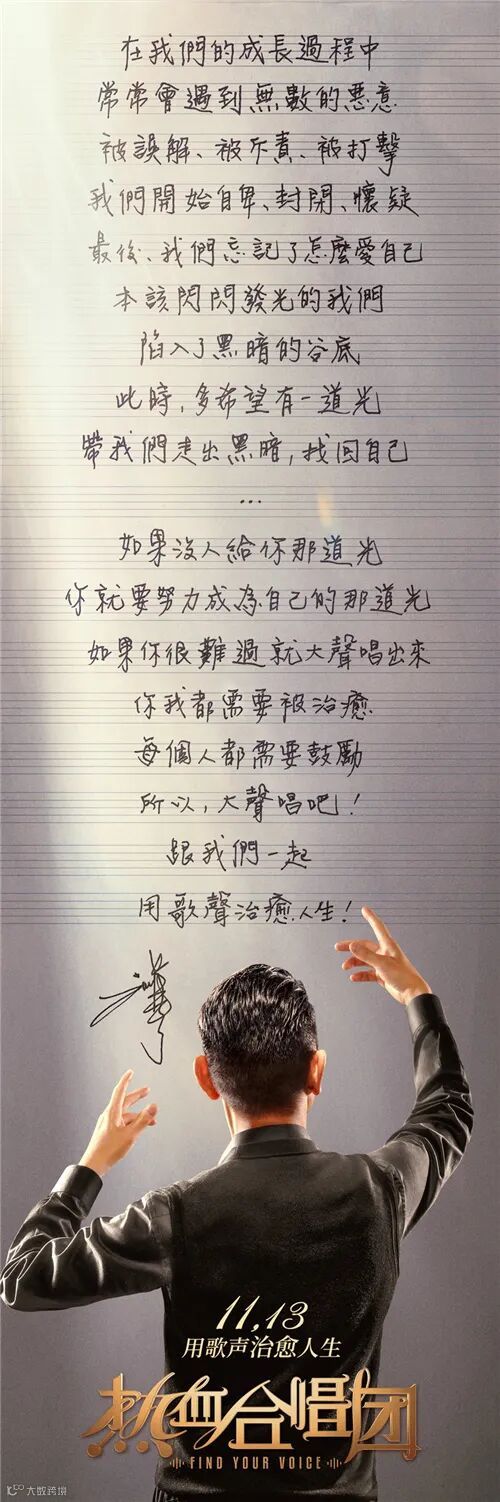 在我們的成長過程中
常常會遇到無數的惡意
被誤解、被斥責、被打擊
我們開始自卑、封閉、懷疑
最後、我們忘記了怎麼愛自己
本該閃閃發光的我們
陷入了黑暗的谷底
此時,多希望有一道光
帶我們走出黑暗,找回自己
...
如果沒人給你那道光
你就要努力成為自己的那道光
如果你很難過就大聲唱出來
你我都需要被治癒
每個人都需要鼓勵
所以,大聲唱吧!
跟我們一起
用歌聲治癒人生!
11.13
用歌声治愈人生
热血合唱团
FIND YOUR VOICE
大数跨境